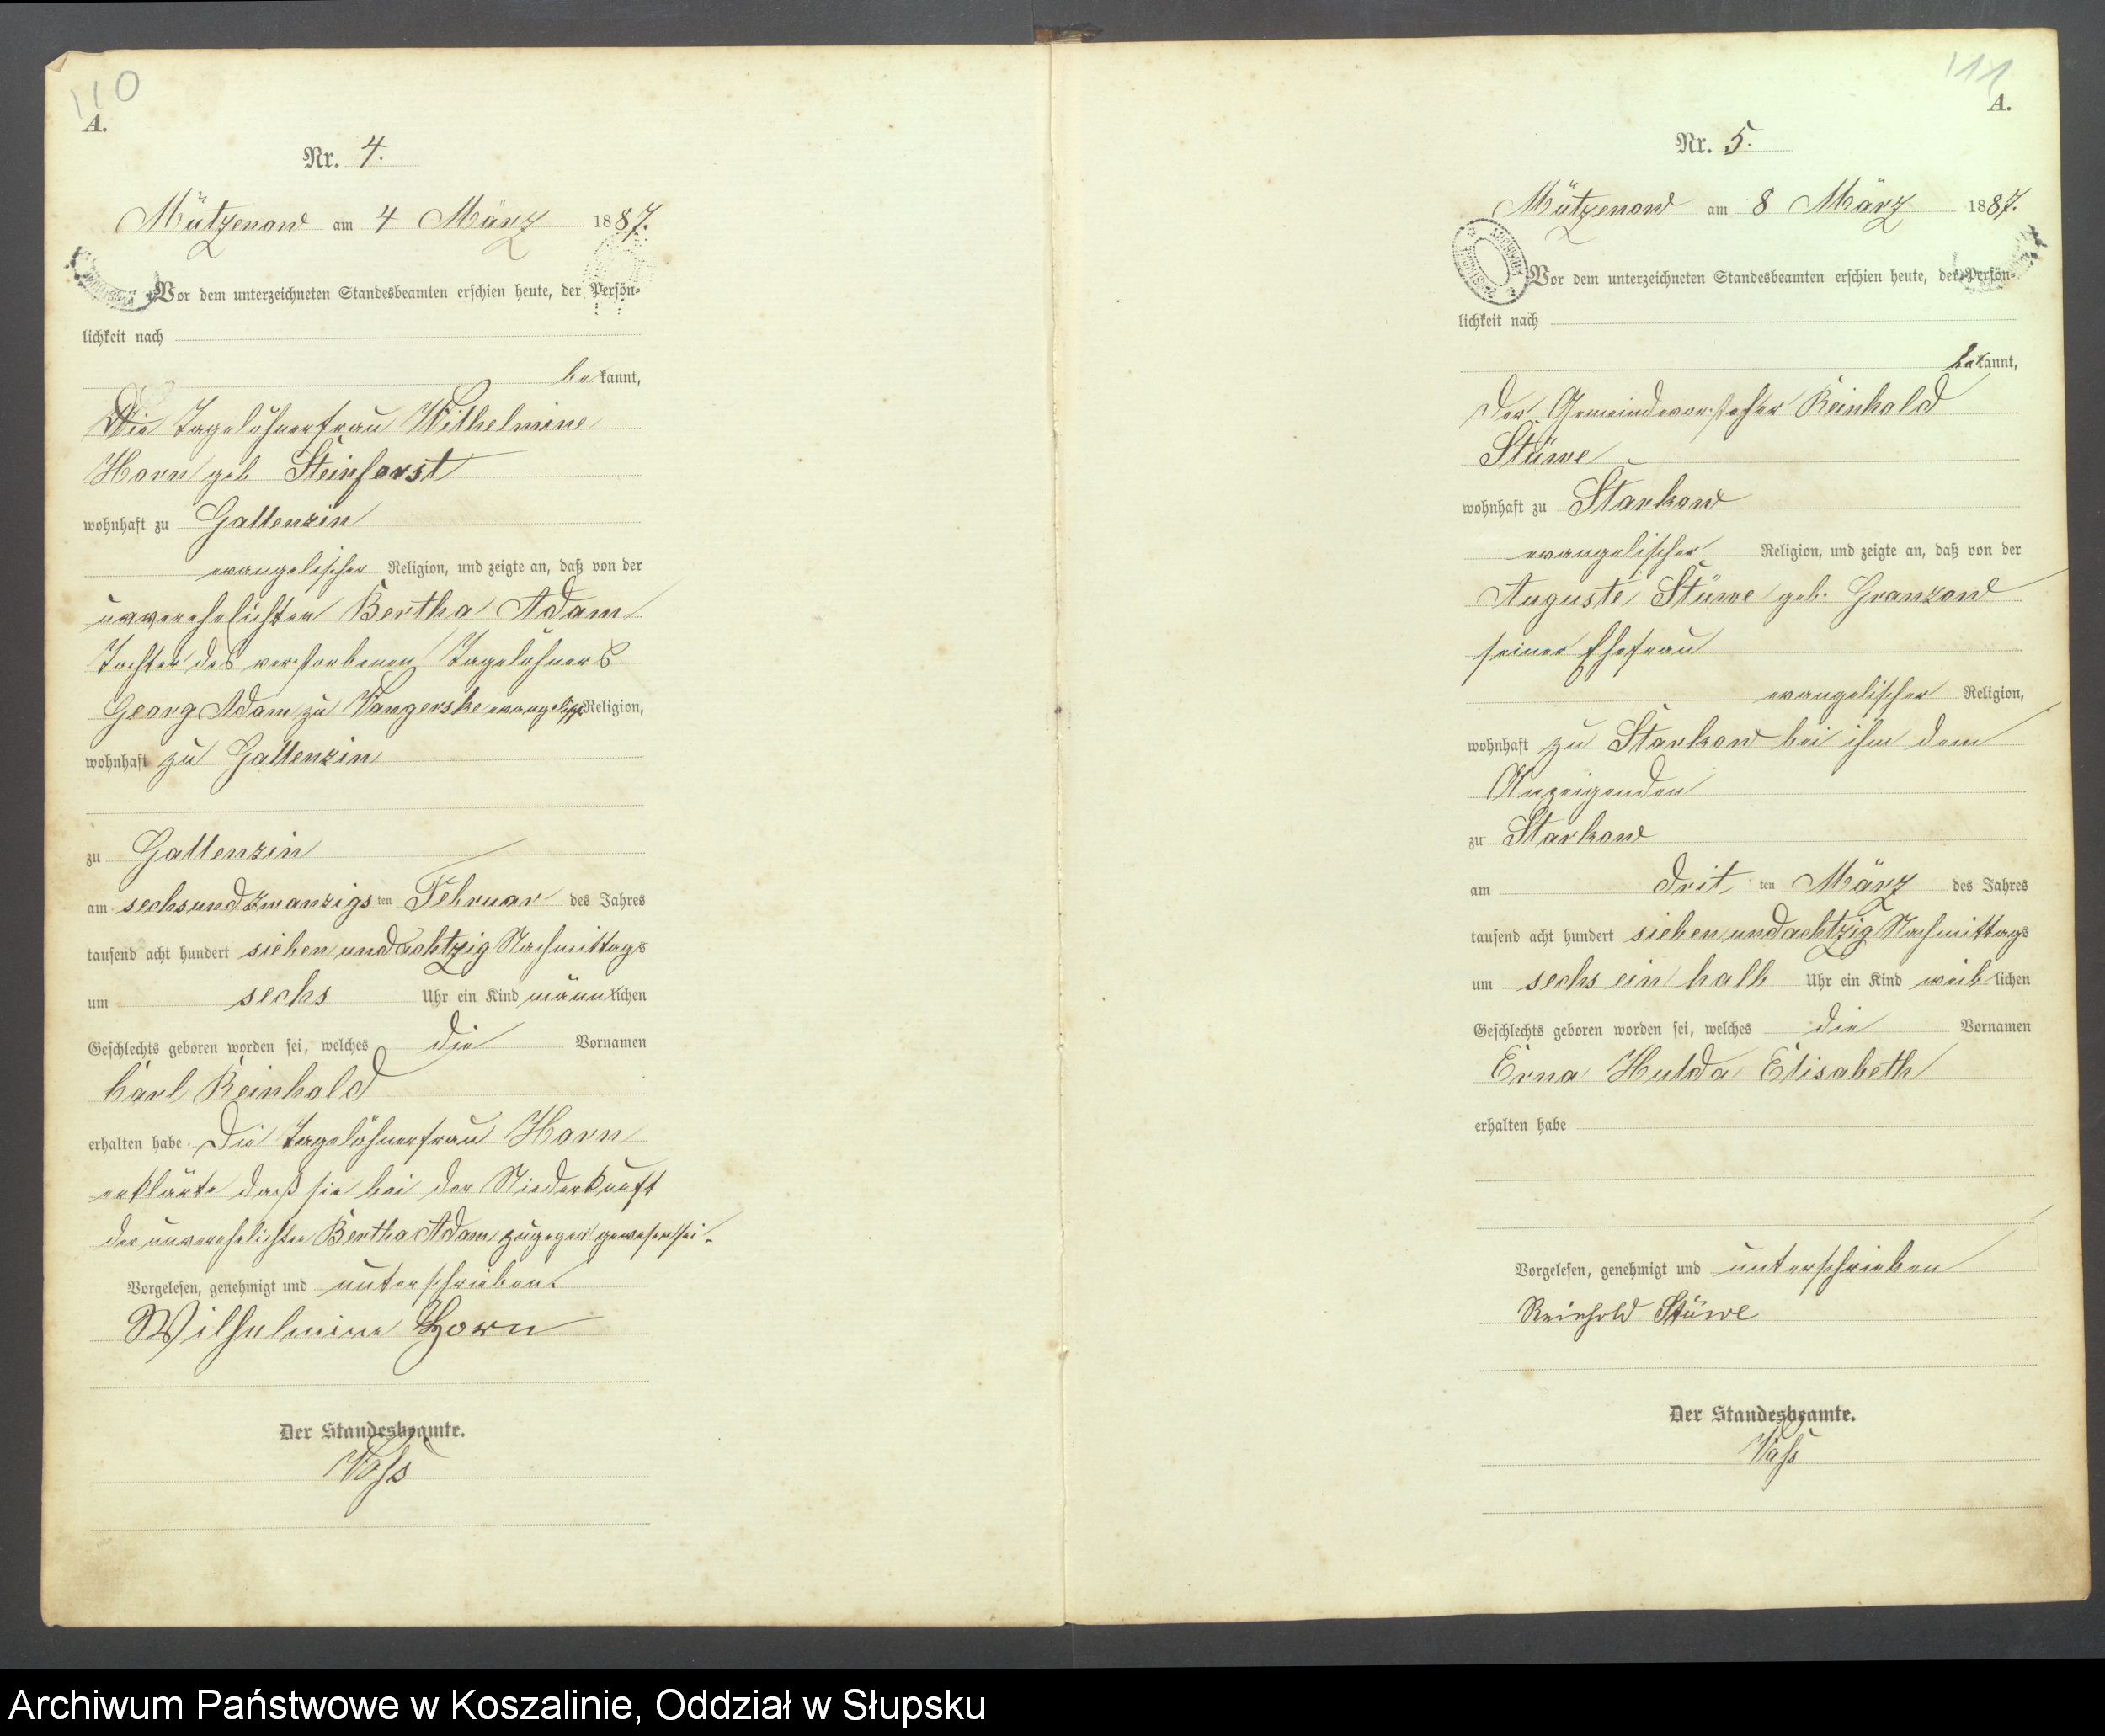 110
A.
Nr. 4.
Mützenow am 4 März 1887.
Vor dem unterzeichneten Standesbeamten erschien heute, der Persön-
lichkeit nach
bekannt,
Die Tagelöhnerfrau Wilhelmine
Horn geb Steinhorst
wohnhaft zu Gallenzin
evangelischer Religion, und zeigte an, daß von der
unverehelichten Bertha Adam
Tochter des verstorbenen Tagelöhners
Georg Adam zu Wangerske evangelischer Religion,
wohnhaft zu Gallenzin
zu Gallenzin
am sechsundzwanzigsten Februar des Jahres
tausend acht hundert siebenundachtzig Nachmittags
um sechs Uhr ein Kind männlichen
Geschlechts geboren worden sei, welches die Vornamen
Carl Reinhold
erhalten habe. Die Tagelöhnerfrau Horn
erklärte daß sie bei der Niederkunft
der unverehelichten Bertha Adam zugegen gewesen sei.
Vorgelesen, genehmigt und unterschrieben.
Wilhelmine Horn
Der Standesbeamte.
Voß
111
A.
Nr. 5.
Mützenow am 8 März 1887.
Vor dem unterzeichneten Standesbeamten erschien heute, der Persön-
lichkeit nach
bekannt,
Der Gemeindevorsteher Reinhold
Stüwe
wohnhaft zu Starkow
evangelischer Religion, und zeigte an, daß von der
Auguste Stüwe geb. Granzow
seiner Ehefrau
evangelischer Religion,
wohnhaft zu Starkow bei ihm dem
Anzeigenden
zu Starkow
am dritten März des Jahres
tausend acht hundert siebenundachtzig Nachmittags
um sechs ein halb Uhr ein Kind weiblichen
Geschlechts geboren worden sei, welches die Vornamen
Erna Hulda Elisabeth
erhalten habe
Vorgelesen, genehmigt und unterschrieben
Reinhold Stüwe
Der Standesbeamte.
Voß
Archiwum Państwowe w Koszalinie, Oddział w Słupsku